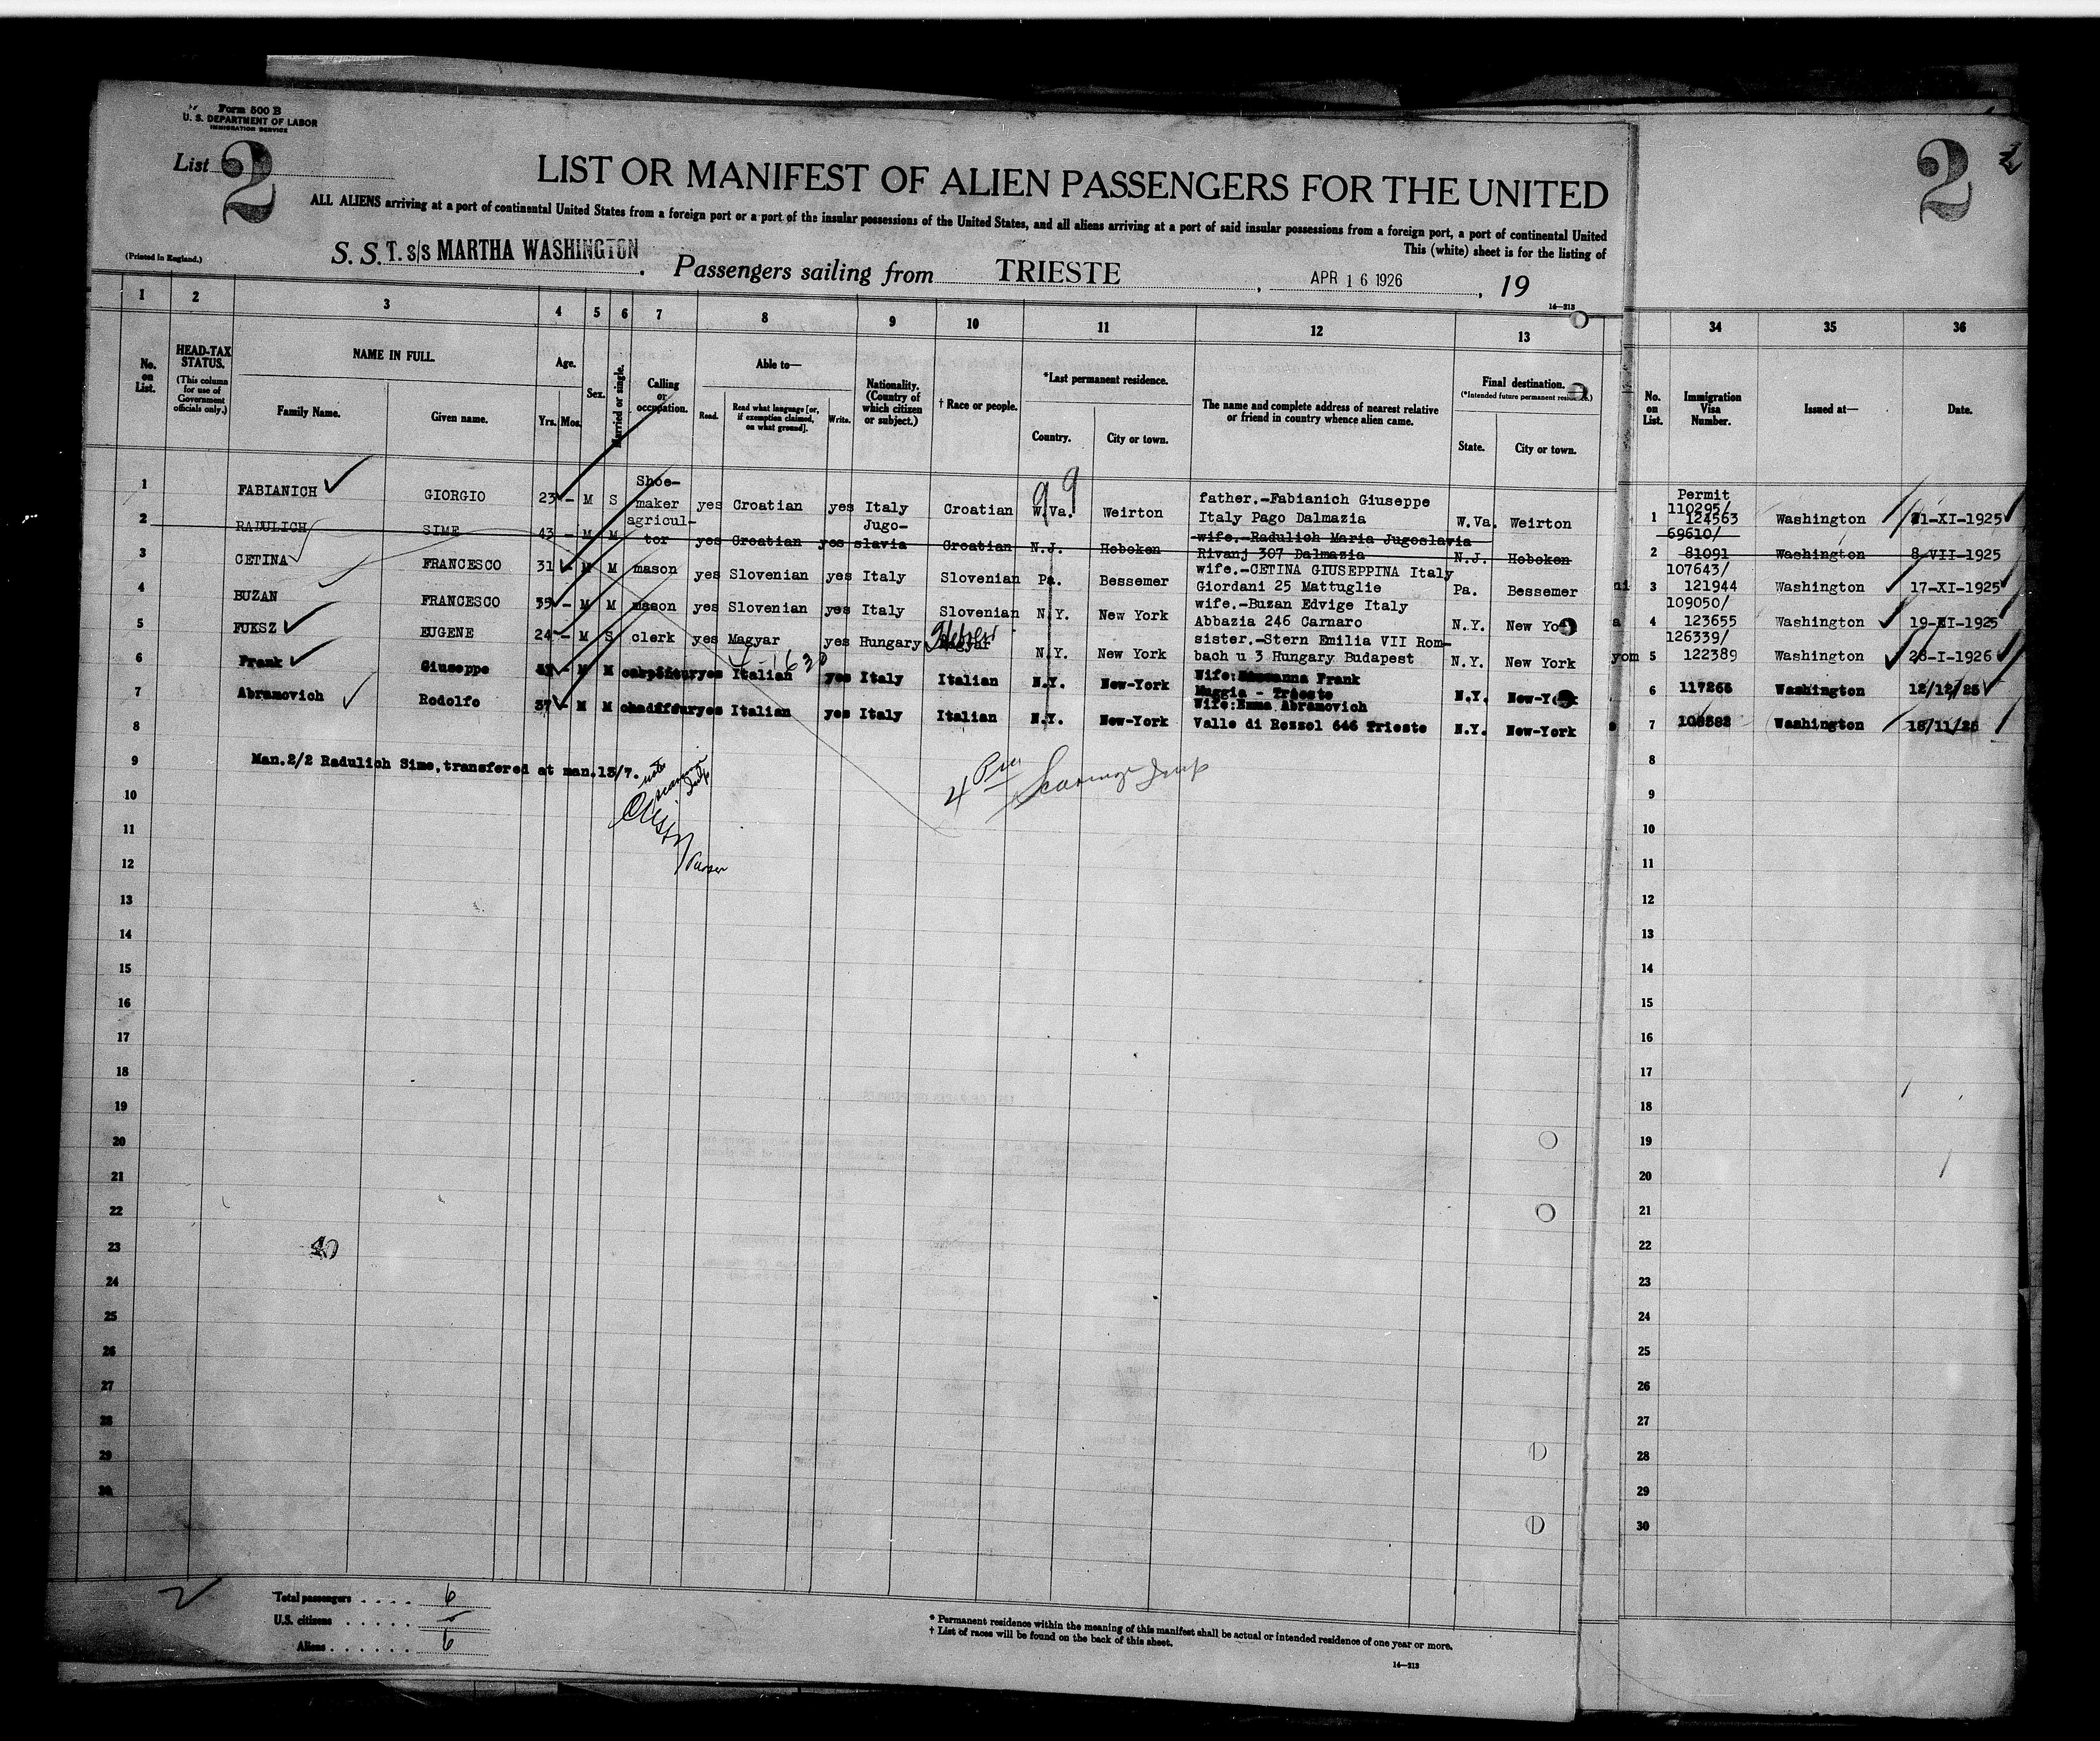 Form 500 B
U. S. DEPARTMENT OF LABOR
IMMIGRATION SERVICE
List 2
2 2
LIST OR MANIFEST OF ALIEN PASSENGERS FOR THE UNITED
ALL ALIENS arriving at a port of continental United States from a foreign port or a port of the insular possessions of the United States, and all aliens arriving at a port of said insular possessions from a foreign port, a port of continental United
This (white) sheet is for the listing of
(Printed in England.)
S. S. T. s/s MARTHA WASHINGTON. Passengers sailing from TRIESTE, APR 16 1926, 19
14—213
1 2 3 4 5 6 7 8 9 10 11 12 13 34 35 36
No. on List.
HEAD-TAX STATUS.
(This column for use of Government officials only.)
NAME IN FULL.
Family Name. Given name.
Age.
Yrs. Mos.
Sex.
Married or single.
Calling or occupation.
Able to—
Read. Read what language [or, if exemption claimed, on what ground]. Write.
Nationality. (Country of which citizen or subject.)
† Race or people.
*Last permanent residence.
Country. City or town.
The name and complete address of nearest relative or friend in country whence alien came.
Final destination.
(*Intended future permanent residence.)
State. City or town.
No. on List.
Immigration Visa Number.
Issued at—
Date.
1 FABIANICH GIORGIO 23 - M S Shoe-maker yes Croatian yes Italy Croatian W.Va. Weirton father.-Fabianich Giuseppe Italy Pago Dalmazia W.Va. Weirton 1 Permit 110295/ 124563 Washington 21-XI-1925
2 RADULICH SIME 43 - M M agricul-tor yes Croatian yes Jugo-slavia Croatian N.J. Hoboken wife.-Radulich Maria Jugoslavia Rivanj 307 Dalmazia N.J. Hoboken 2 69610/ 81091 Washington 8-VII-1925
3 CETINA FRANCESCO 31 - M M mason yes Slovenian yes Italy Slovenian Pa. Bessemer wife.-CETINA GIUSEPPINA Italy Giordani 25 Mattuglie Pa. Bessemer 3 107643/ 121944 Washington 17-XI-1925
4 BUZAN FRANCESCO 35 - M M mason yes Slovenian yes Italy Slovenian N.Y. New York wife.-Buzan Edvige Italy Abbazia 246 Carnaro N.Y. New York 4 109050/ 123655 Washington 19-XI-1925
5 FUKSZ EUGENE 24 - M S clerk yes Magyar yes Hungary Magyar Hebrew N.Y. New York sister.-Stern Emilia VII Rom-bach u 3 Hungary Budapest N.Y. New York 5 126339/ 122389 Washington 28-I-1926
6 Frank Giuseppe - M M yes Italian yes Italy Italian N.Y. New-York Wife: Frank Muggia - Trieste N.Y. New-York 6 117265 Washington 12/12/25
7 Abramovich Rodolfo 37 - M M chauffeur yes Italian yes Italy Italian N.Y. New-York Wife:Emma Abramovich Valle di Rozzol 646 Trieste N.Y. New-York 7 Washington 18/11/25
99
8 8
9 Man.2/2 Radulich Sime,transfered at man.13/7. 9
Purser
10 10
11 11
12 12
13 13
14 14
15 15
16 16
17 17
18 18
19 19
20 20
21 21
22 22
23 23
24 24
25 25
26 26
27 27
28 28
29 29
30 30
Total passengers . . . . 6
U.S. citizens . . . . . -
Aliens . . . . . . 6
* Permanent residence within the meaning of this manifest shall be actual or intended residence of one year or more.
† List of races will be found on the back of this sheet.
14—213